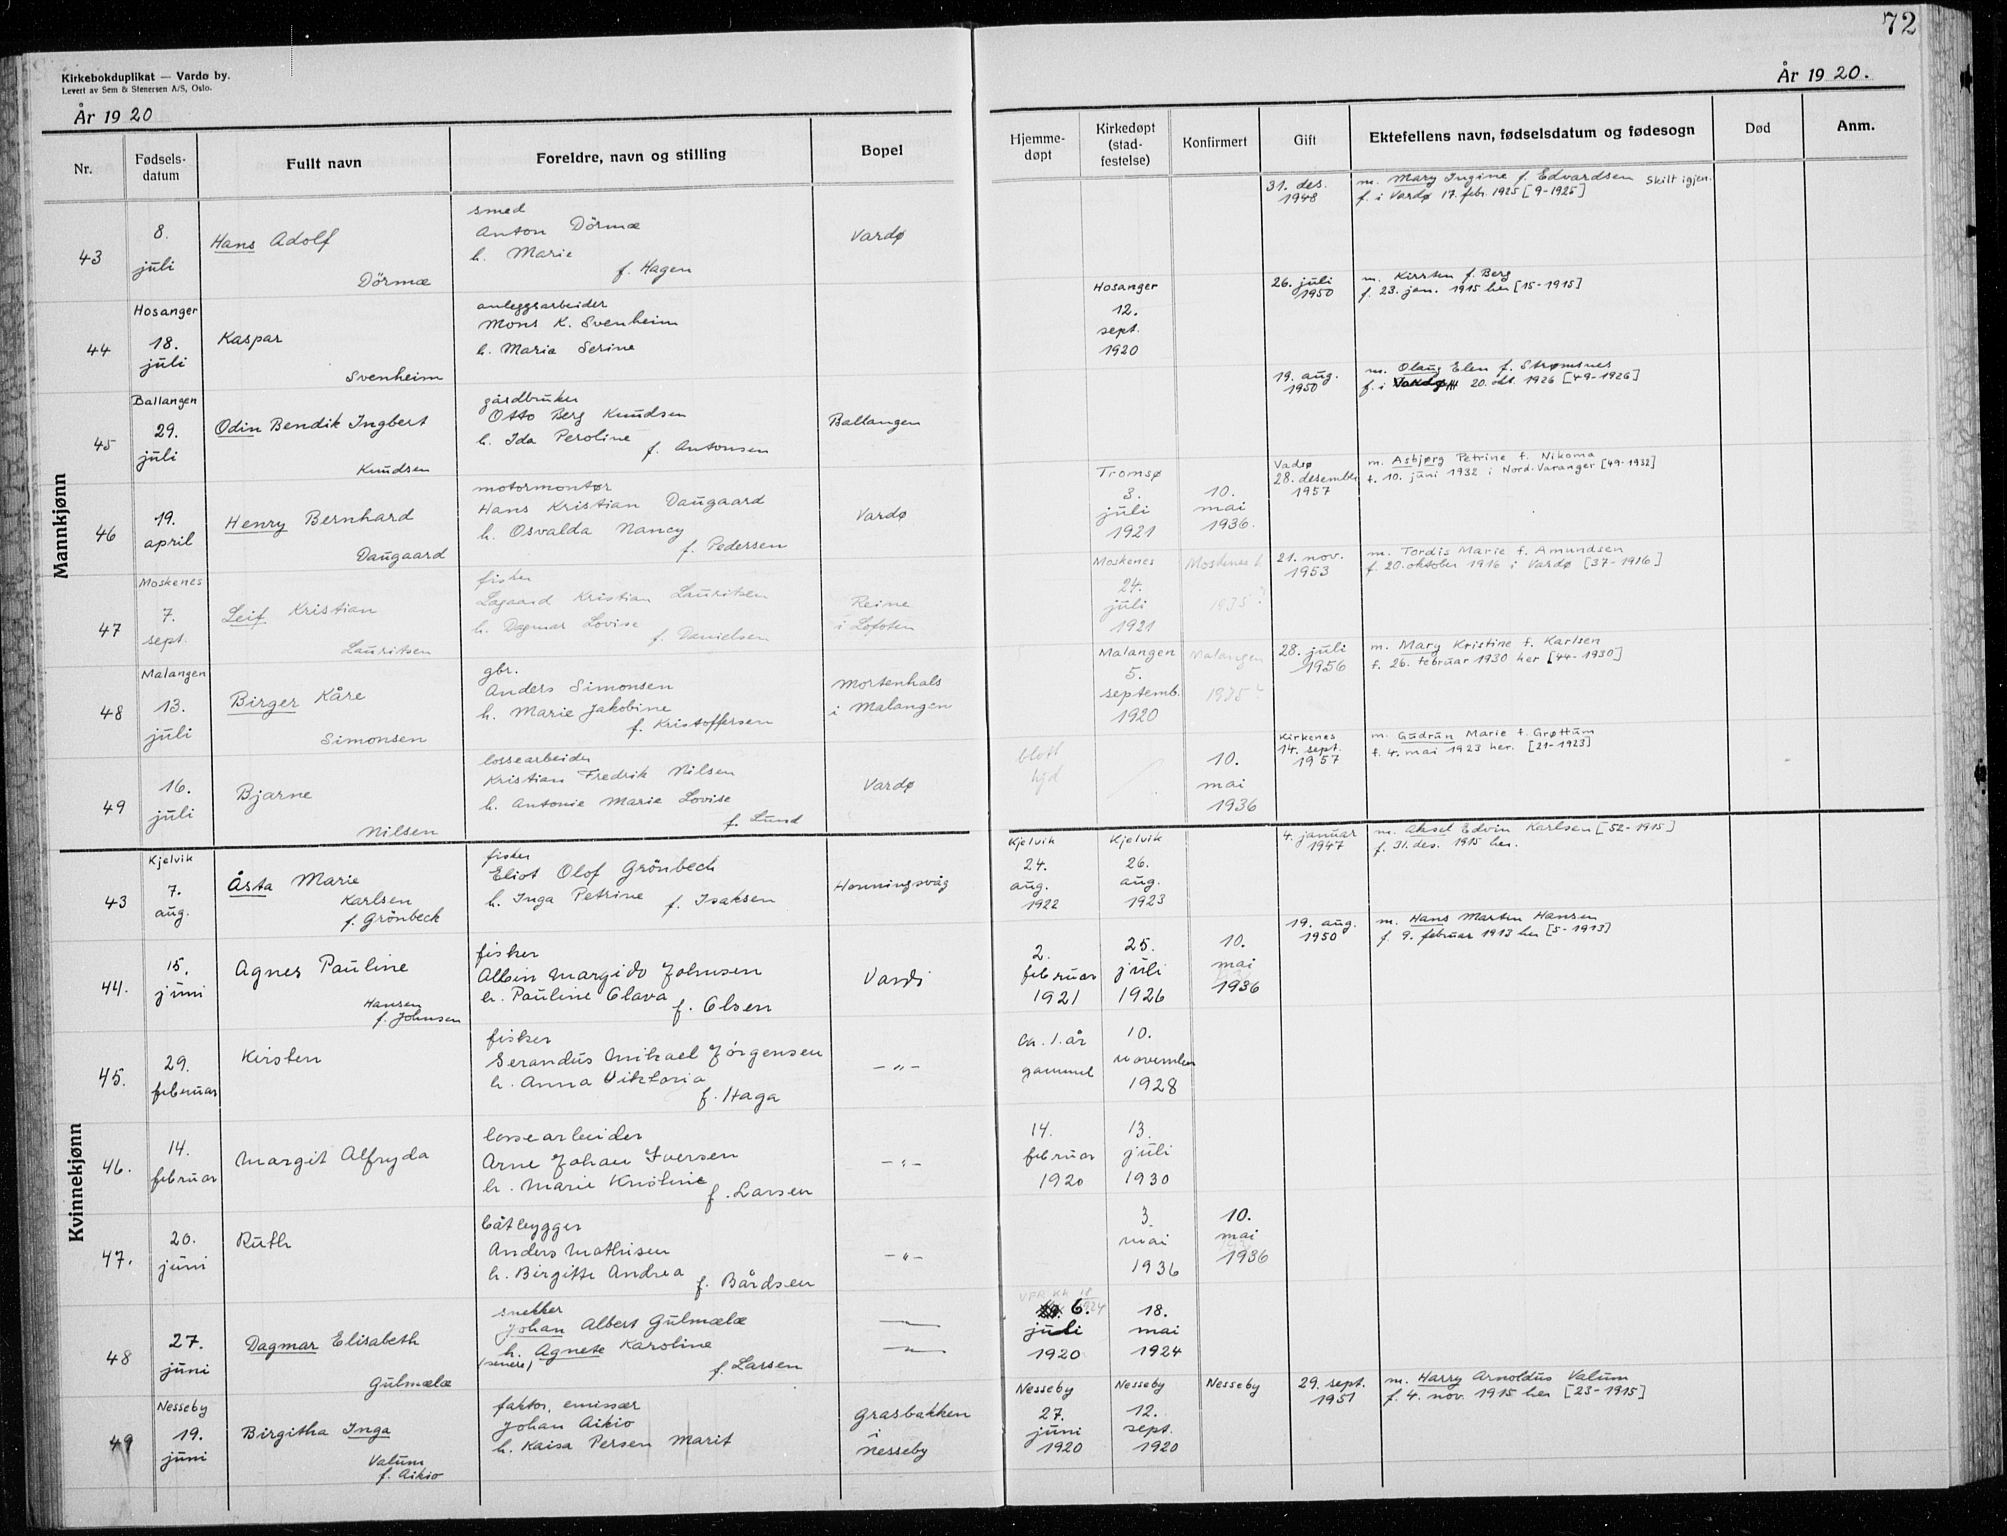 72
Kirkebokduplikat — Vardø by.
Levert av Sem & Stenersen A/S, Oslo.
År 1920
År 1920.
Nr.
Fødsels-
datum
Fullt navn
Foreldre, navn og stilling
Bopel
Hjemme-
døpt
Kirkedøpt
(stad-
festelse)
Konfirmert
Gift
Ektefellens navn, fødselsdatum og fødesogn
Død
Anm.
Mannkjønn
43
8.
juli
Hans Adolf
Dörmæ
smed
Anton Dörmæ
h. Marie
f. Hagen
Vardø
31. des.
1948
m. Mary Ingine f. Edvardsen Skilt igjen.
f. i Vardø 17. febr. 1925 [9-1925]
44
Hosanger
18.
juli
Kaspar
Svenheim
anleggsarbeider
Mons K. Svenheim
h. Maria Serine
Hosanger
12.
sept.
1920
26. juli
1950
m. Kirsten f. Berg
f. 23. jan. 1915 her [15-1915]
45
Ballangen
29.
juli
Odin Bendik Ingbert
Knudsen
gårdbruker
Otto Berg Knudsen
h. Ida Peroline
f. Antonsen
Ballangen
19. aug.
1950
m. Olaug Elen f. Strømsnes
f. i Vardø 20. okt. 1926 [49-1926]
46
19.
april
Henry Bernhard
Daugaard
motormontør
Hans Kristian Daugaard
h. Osvalda Nancy
f. Pedersen
Vardø
Tromsø
3.
juli
1921
10.
mai
1936.
Vadsø
28. desember
1957
m. Asbjørg Petrine f. Nikoma
f. 10. juni 1932 i Nord-Varanger [49-1932]
47
Moskenes
7.
sept.
Leif Kristian
Lauritsen
fisker
Lagaard Kristian Lauritsen
h. Dagmar Lovise
f. Danielsen
Reine
i Lofoten
Moskenes
24.
juli
1921
Moskenes
1935?
21. nov.
1953
m. Tordis Marie f. Amundsen
f. 20. oktober 1916 i Vardø [37-1916]
48
Malangen
13.
juli
Birger Kåre
Simonsen
gbr.
Anders Simonsen
h. Marie Jakobine
f. Kristoffersen
Mortenhals
i Malangen
Malangen
5.
septemb.
1920
Malangen
1935?
28. juli
1956
m. Mary Kristine f. Karlsen
f. 26. februar 1930 her [44-1930]
49
16.
juli
Bjarne
Nilsen
lossearbeider
Kristian Fredrik Nilsen
h. Antonie Marie Lovise
f. Lund
Vardø
blott
hjd
10.
mai
1936
Kirkenes
14. sept.
1957
m. Gudrun Marie f. Grøttum
f. 4. mai 1923 her. [21-1923]
Kvinnekjønn
43
Kjelvik
7.
aug.
Åsta Marie
Karlsen
f. Grönbeck
fisker
Eliot Olof Grönbeck
h. Inga Petrine f. Isaksen
Honningsvåg
Kjelvik
24.
aug.
1922
Kjelvik
26.
aug.
1923
4. januar
1947
m. Aksel Edvin Karlsen [52-1915]
f. 31. des. 1915 her.
44.
15.
juni
Agnes Pauline
Hansen
f. Johnsen
fisker
Albin Margido Johnsen
h. Pauline Olava
f. Olsen
Vardö
2.
februar
1921
25.
juli
1926
10.
mai
1936
19. aug.
1950
m. Hans Martin Hansen
f. 9. februar 1913 her [5-1913]
45.
29.
februar
Kirsten
fisker
Serandus Mikael Jörgensen
h. Anna Viktoria
f. Haga
—„—
ca. 1. år
gammel
10.
november
1928
46.
14.
februar
Margit Alfryda
lossearbeider
Arne Johan Iversen
h. Marie Kristine
f. Larsen
—„—
14.
februar
1920
13.
juli
1930
47.
20.
juni
Ruth
båtbygger
Anders Mathisen
h. Birgitte Andrea
f. Bårdsen
—„—
3.
mai
1936
10.
mai
1936
48
27.
juni
Dagmar Elisabeth
Gulmælæ
snekker
Johan Albert Gulmælæ
h. Agnete Karoline
(senere)
f. Larsen
—„—
6.
juli
1920
18.
mai
1924
49
Nesseby
19.
juni
Birgitha Inga
Valum
f. Aikio
faktor, emissær
Johan Aikio
h. Kaisa Persen Marit
Grasbakken
i
Nesseby
Nesseby
27.
juni
1920
Nesseby
12.
sept.
1920
Nesseby
29. sept.
1951
m. Harry Arnoldus Valum
f. 4. nov. 1915 her [23-1915]